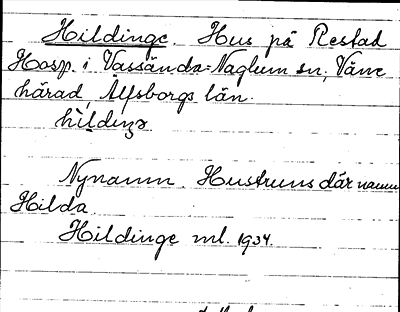 Hildinge. Hus på Restad
Hosp. i Vassända-Naglum sn, Väne
härad, Älfsborgs län.
hìldiŋə
Nynamn. Hustruns där namn
Hilda
Hildinge ml. 1934.